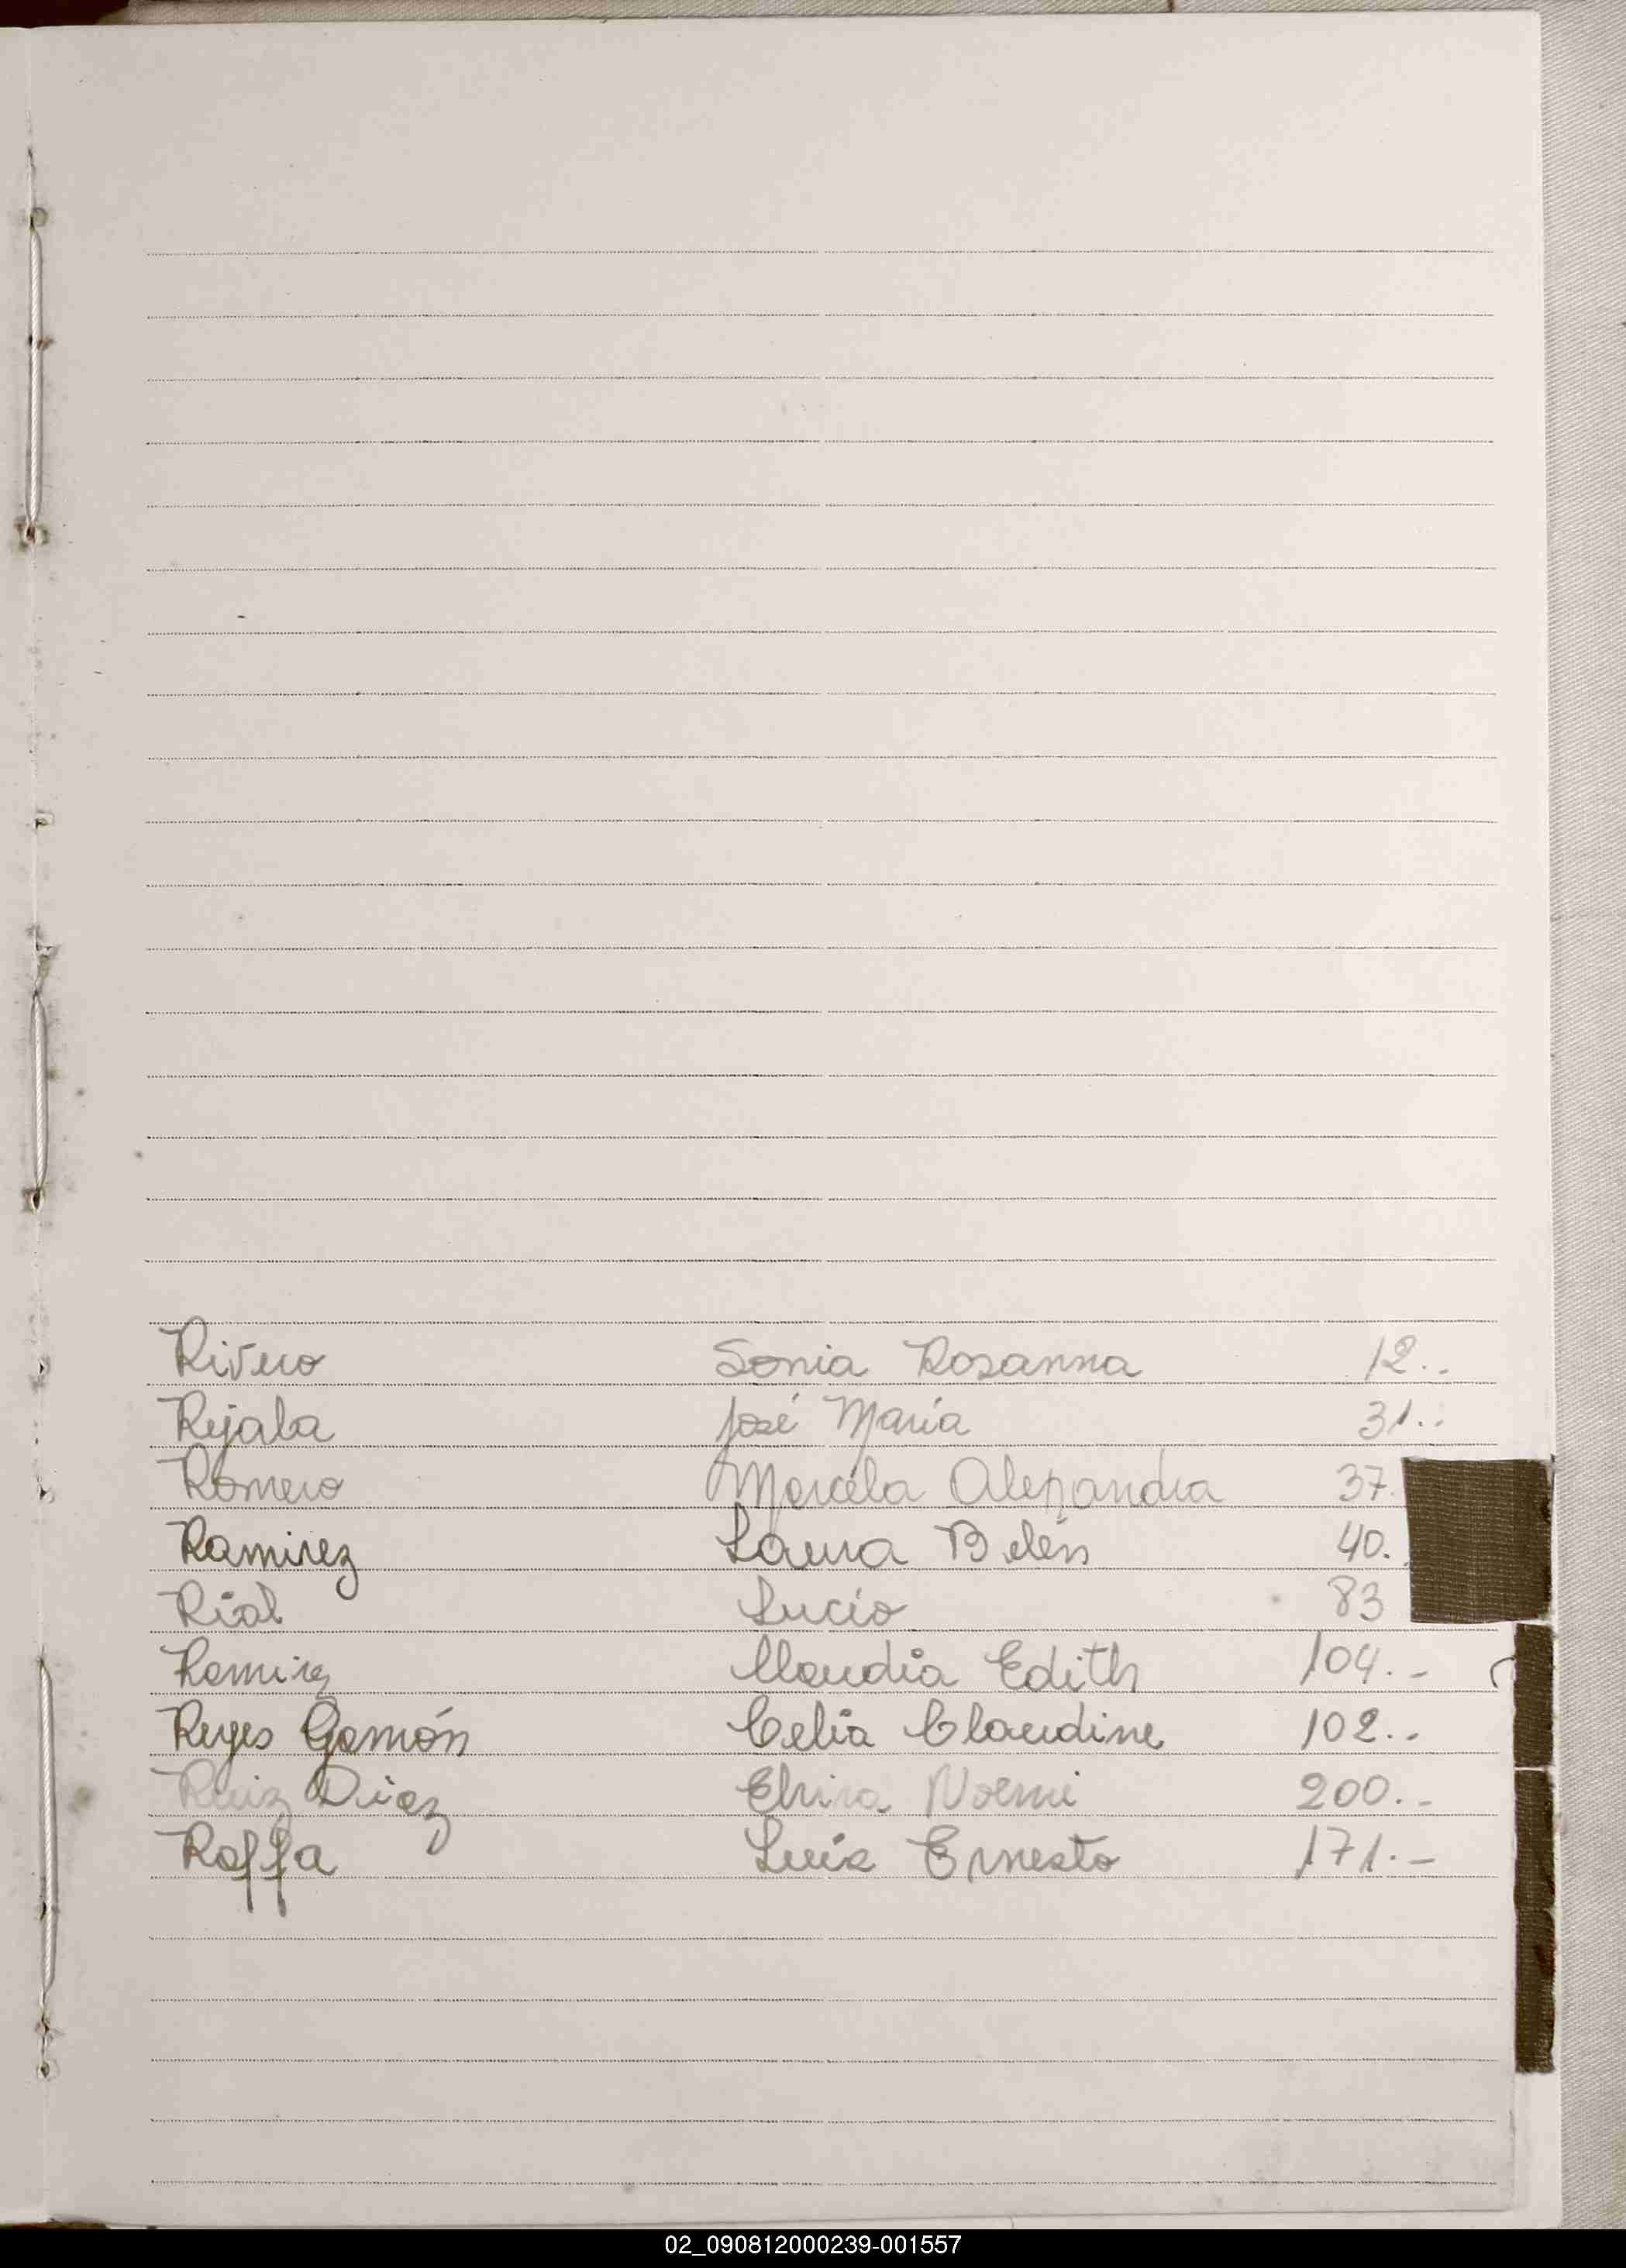 Rivero Sonia Rosanna 12..
Rejala José María 31..
Romero Marcela Alejandra 37.
Ramirez Laura Belén 40.
Rial Lucio 83
Ramirez Claudia Edith 104.-
Reyes Gamón Celia Claudine 102..
Ruiz Diaz Elvira Noemi 200.-
Raffa Luis Ernesto 171.-
02_090812000239-001557